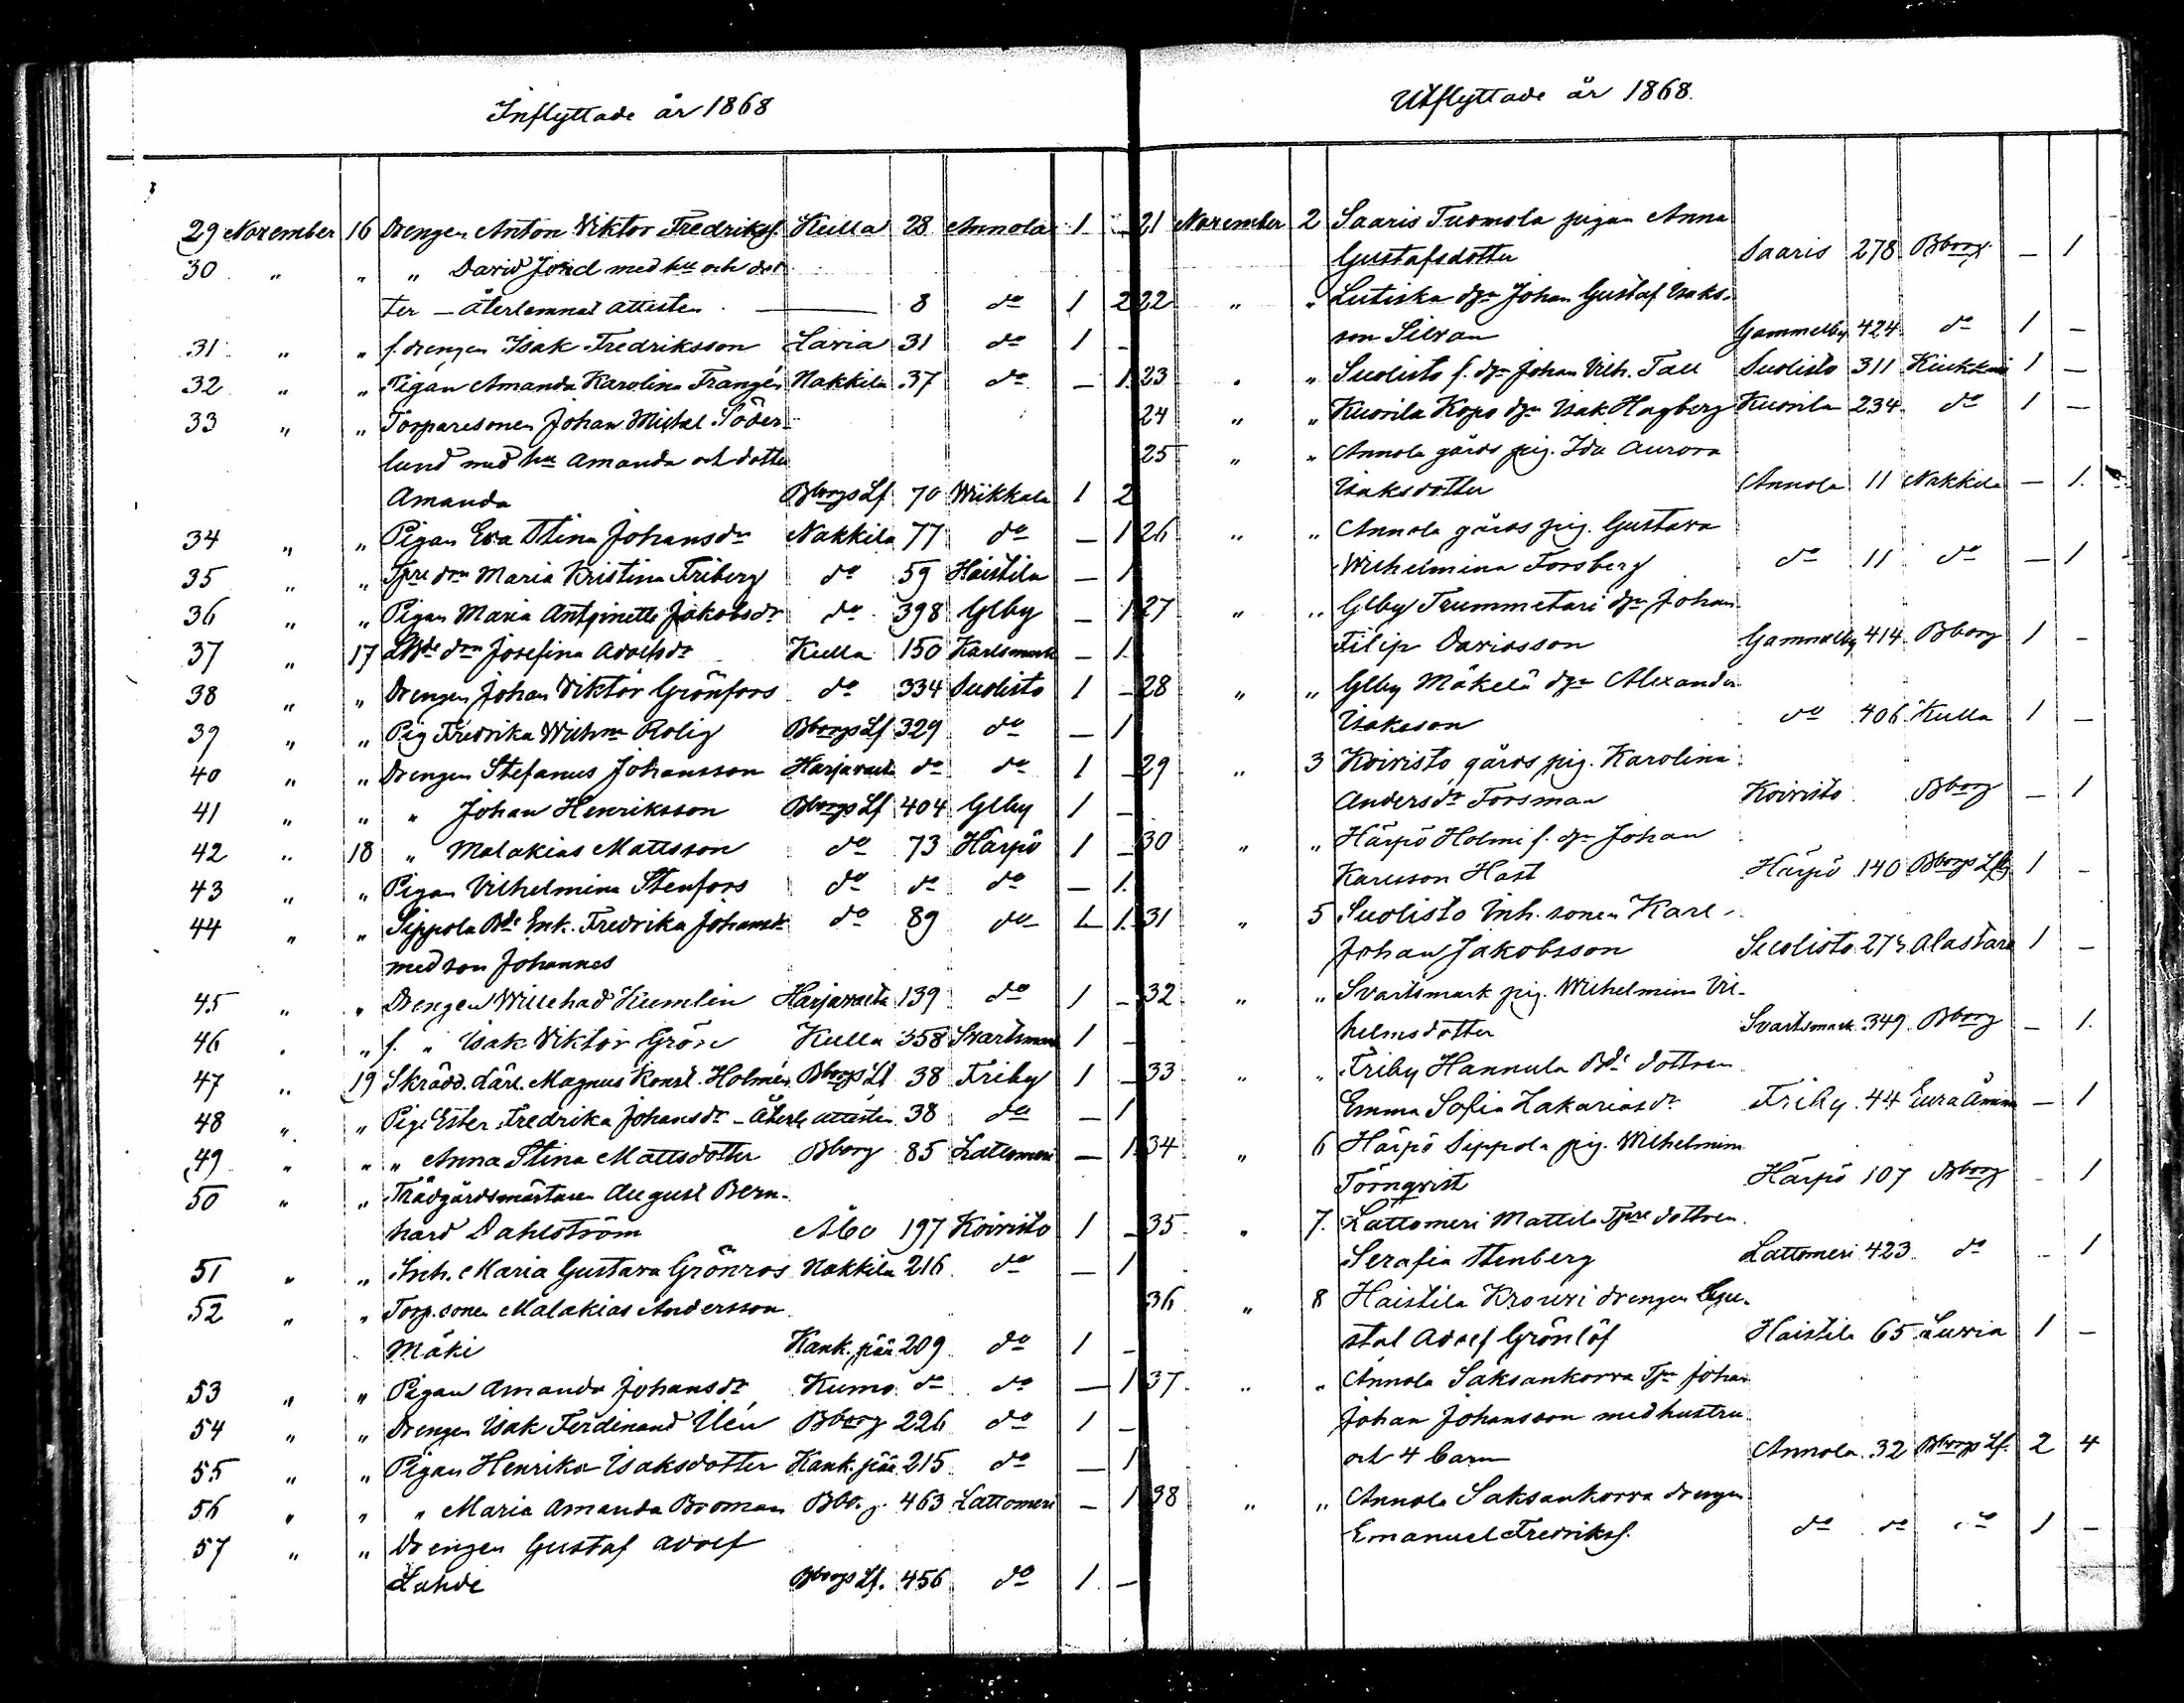 Inflyttade år 1868
29 November 16 Drengen Anton Viktor Fredrikss. Kulla 28 Annola 1 –
30 " " " David Jord med hu och dot
ter – återlemnat attesten — 8 do 1 2
31 " " f. drengen Isak Fredriksson Lavia 31 do 1 –
32 " " Pigan Amanda Karolina Frangén Nakkila 37 do – 1
33 " " Torparesonen Johan Mickel Söder-
lund med hu Amanda och dotter
Amanda Bborgs Lf 70 Wiikkala 1 2
34 " " Pigan Eva Stina Johansdr Nakkila 77 do – 1
35 " " Tpre dn Maria Kristina Friberg do 59 Haistila – 1
36 " " Pigan Maria Antoinette Jakobsdr do 398 Glby – 1
37 " 17 dn Josefina Adolfsdr Kulla 150 Karlsmark – 1
38 " " Drengen Johan Viktor Grönfors do 334 Suolisto 1 –
39 " " Pig Fredrika Wilhna Rolig Bborgs Lf 329 do – 1
40 " " Drengen Stefanus Johansson Harjavalta do do 1 –
41 " " " Johan Henriksson Bborgs Lf 404 Glby 1 –
42 " 18 " Malakias Mattsson do 73 Härpö 1 –
43 " " Pigan Vilhelmina Stenfors do do do – 1
44 " " Sippola Bde Enk. Fredrika Johansdr do 89 do 1 1
med son Johannes
45 " " Drengen Willehad Kumlin Harjavalta 139 do 1 –
46 " " f. " Isak Viktor Grön Kulla 358 Svartsmark 1 –
47 " 19 Skrädd. lärl. Magnus Konst. Holmén Bborgs Lf 38 Friby 1 –
48 " " Pig. Ester Fredrika Johansdr – Återl. attesten 38 do – 1
49 " " " Anna Stina Mattsdotter Bborg 85 Lattomeri – 1
50 " " Trädgårdsmästaren August Bern-
hard Dahlström Åbo 197 Koivisto 1 –
51 " " Inh. Maria Gustava Grönroos Nakkila 216 do – 1
52 " " Torp.sonen Malakias Andersson
Mäki Kank.pää 209 do 1 –
53 " " Pigan Amanda Johansdr Kumo do do – 1
54 " " Drengen Isak Ferdinand Ilén Bborg 226 do 1 –
55 " " Pigan Henrika Isaksdotter Kank.pää 215 do – 1
56 " " " Maria Amanda Broman Bborg 463 Lattomeri – 1
57 " " Drengen Gustaf Adolf
Lahde Bborgs Lf. 456 do 1 –
Utflyttade år 1868.
21 November 2 Saaris Tuomola pigan Anna
Gustafsdotter Saaris 278 Bborg – 1
22 " " Lutiska dgn Johan Gustaf Isaks-
son Silvan Gammelby 424 do 1 –
23 " " Suolisto f. dgn Johan Vilh. Tall Suolisto 311 Kiukkais 1 –
24 " " Kuorila Kopo dgn Isak Hagberg Kuorila 234 do 1 –
25 " " Annola gårds pig. Ida Aurora
Isaksdotter Annola 11 Nakkila – 1
26 " " Annola gårds pig. Gustava
Wilhelmina Forsberg do 11 do – 1
27 " " Glby Trummetari dgn Johan
Filip Davidsson Gammelby 414 Bborg 1 –
28 " " Glby Mäkelä dgn Alexander
Isaksson do 406 Kulla 1 –
29 " 3 Koivisto gårds pig. Karolina
Andersdr Forsman Koivisto Bborg – 1
30 " " Härpö Holmi f. dgn Johan
Karlsson Hast Härpö 140 Bborgs Lf 1 –
31 " 5 Suolisto Inh. sonen Karl
Johan Jakobsson Suolisto 275 Alastaro 1 –
32 " " Svartsmark pig. Wilhelmina Vil-
helmsdotter Svartsmark 349 Bborg – 1
33 " " Friby Hannula Bds dottren
Emma Sofia Zakariasdr Friby 44 Eura Åmin – 1
34 " 6 Härpö Sippola pig. Wilhelmina
Törnqvist Härpö 107 Bborg – 1
35 " 7. Lattomeri Mattila Tpre dottren
Serafia Stenberg Lattomeri 423 do – 1
36 " 8 Haistila Krouvi drengen Gu-
staf Adolf Grönlöf Haistila 65 Luvia 1 –
37 " " Annola Saksankorva Tpn Johan
Johan Johansson med hustru
och 4 barn Annola 32 Bborgs Lf. 2 4
38 " " Annola Saksankorva drengen
Emanuel Fredrikss. do do do 1 –